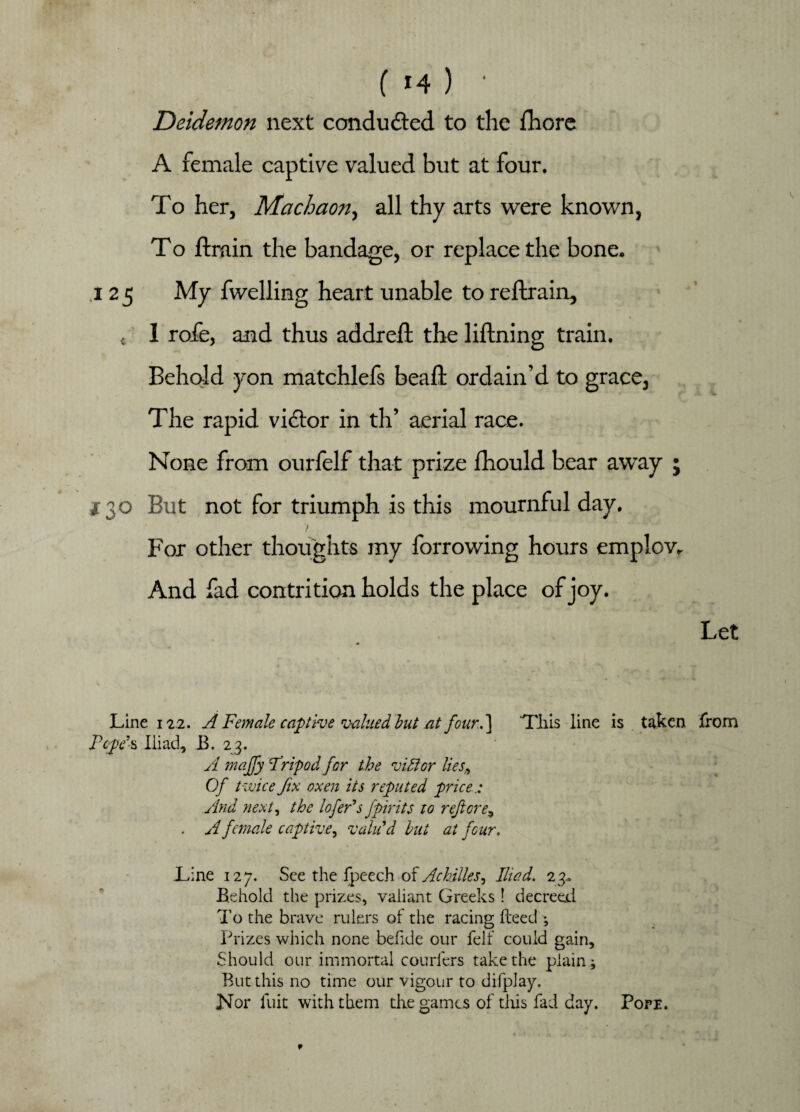 ( 14 )
Deidemon next conducted to the ſhore
A female captive valued but at four.
To her, Machaon, all thy arts were known,
To ſtrain the bandage, or replace the bone.
125 My ſwelling heart unable to reſtrain,
I roſe, and thus addreſt the liſtning train.
Behold yon matchleſs beaſt ordain'd to grace,
The rapid victor in th' aerial race.
None from ourſelf that prize ſhould bear away ;
130 But not for triumph is this mournful day.
For other thoughts my ſorrowing hours employ,
And ſad contrition holds the place of joy.
Let
Line 122. A Female captive valued but at four.] This line is taken from
Pope's Iliad, B. 23.
A maſſy Tripod for the victor lies,
Of twice ſix oxen its reputed price :
And next, the loſer's ſpirits to reſtore,
A female captive, valu'd but at four.
Line 127. See the ſpeech of Achilles, Iliad. 23.
Behold the prizes, valiant Greeks ! decreed
To the brave rulers of the racing ſteed ;
Prizes which none beſide our ſelf could gain,
Should our immortal courſers take the plain ;
But this no time our vigour to diſplay.
Nor ſuit with them the games of this ſad day. POPE.